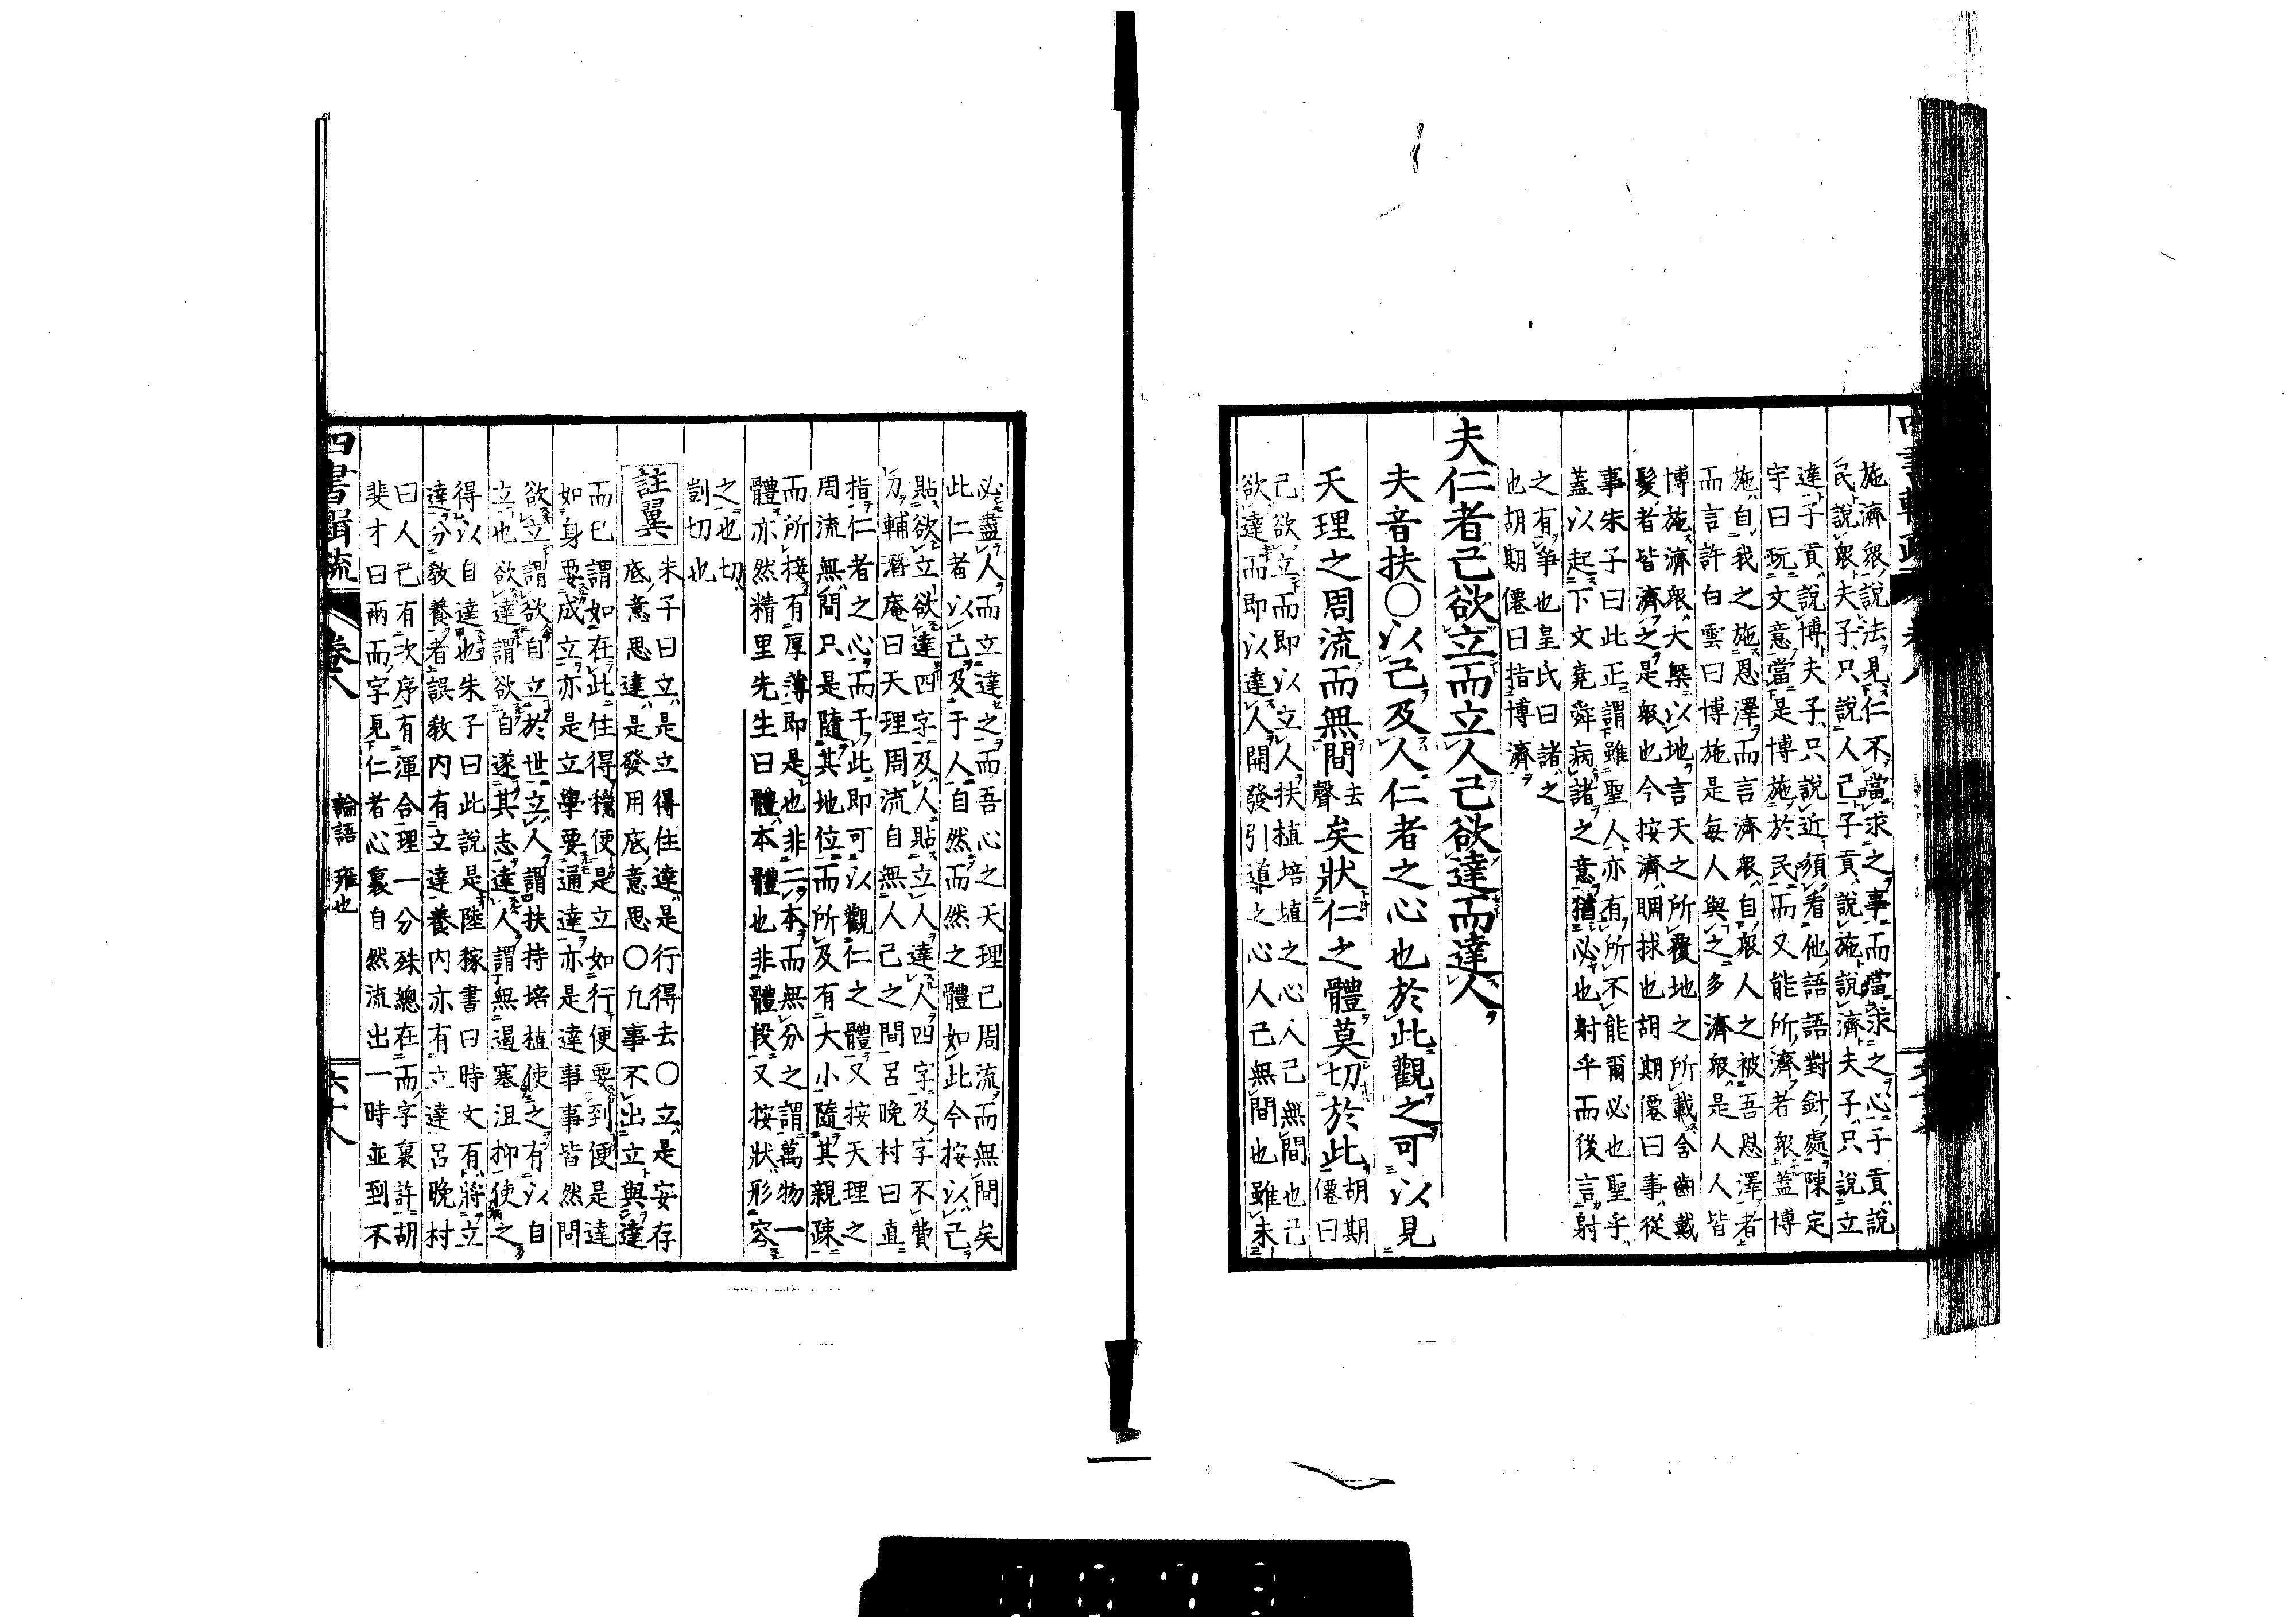 施濟衆說法見仁不當求之事而當求之心子貢說
民說衆夫子只說人己子貢說施說濟夫子只說立
達子貢說博夫子只說近須看他語語對針處陳定
宇曰玩文意當是博施於民而又能所濟者衆蓋博
施自我之施恩澤而言濟衆自衆人之被吾恩澤者
而言許白雲曰博施是每人與之多濟衆是人人皆
博施濟衆大槩以地言天之所覆地之所載含齒戴
髮者皆濟之是衆也今按濟賙捄也胡期僊曰事從
事朱子曰此正謂雖聖人亦有所不能爾必也聖乎
蓋以起下文堯舜病諸之意猶必也射乎而後言射
之有爭也皇氏曰諸之
也胡期僊曰指博濟
夫仁者己欲立而立人己欲達而達人
夫音扶○以己及人仁者之心也於此觀之可以見
天理之周流而無間去聲矣狀仁之體莫切於此胡期僊曰
己欲立而即以立人扶植培埴之心人己無間也己
欲達而即以達人開發引導之心人己無間也雖未
必盡人而立達之而吾心之天理已周流而無間矣
此仁者以己及于人自然而然之體如此今按以己
貼欲立欲達四字及人貼立人達人四字及字不費
分輔潛庵曰天理周流自無人己之間呂晚村曰直
指仁者之心而于此即可以觀仁之體又按天理之
周流無間只是隨其地位而所及有大小隨其親疎
而所接有厚薄即是也非二本而無分之謂萬物一
體亦然精里先生曰體本體也非體段又按狀形容
之也切
剴切也
註翼 朱子曰立是立得住達是行得去○立是安存
底意思達是發用底意思○凡事不出立與達
而已謂如在此住得穩便是立如行便要到便是達
如身要成立亦是立學要通達亦是達事事皆然問
欲立謂欲自立於世立人謂扶持培植使之有以自
立也欲達謂欲自遂其志達人謂無遏塞沮抑使之
得以自達也朱子曰此說是陸稼書曰時文有將立
達分教養者誤教內有立達養內亦有立達呂晚村
曰人己有次序有渾合理一分殊總在而字裏許胡
斐才曰兩而字見仁者心裏自然流出一時並到不
四書輯疏 卷八 論語 雍也 六十八